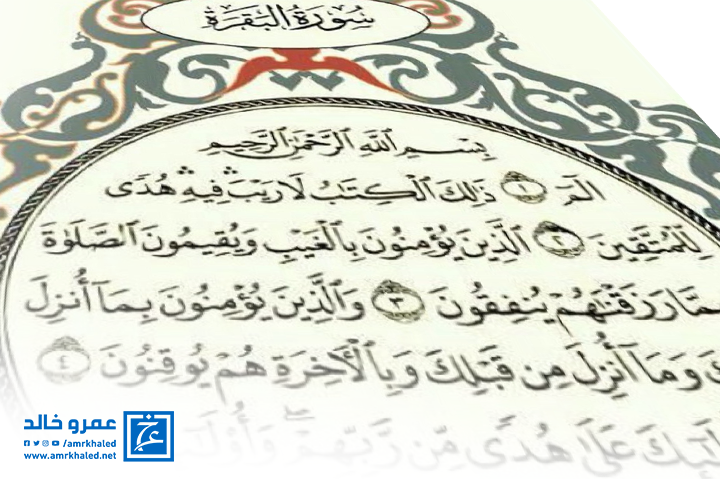 سُورَةُ الْبَقَرَةِ
بِسْمِ اللَّهِ الرَّحْمَٰنِ الرَّحِيمِ
الٓمٓ ١ ذَٰلِكَ الْكِتَابُ لَا رَيْبَ ۛ فِيهِ ۛ هُدًى
لِّلْمُتَّقِينَ ٢ الَّذِينَ يُؤْمِنُونَ بِالْغَيْبِ وَيُقِيمُونَ الصَّلَاةَ
رَزَقْنَاهُمْ يُنفِقُونَ ٣ وَالَّذِينَ يُؤْمِنُونَ بِمَا أُنزِلَ
وَمَا أُنزِلَ مِن قَبْلِكَ وَبِالْآخِرَةِ هُمْ يُوقِنُونَ ٤
عَلَىٰ هُدًى مِّن رَّبِّهِمْ ۖ
عمرو خالد
/amrkhaled
www.amrkhaled.net